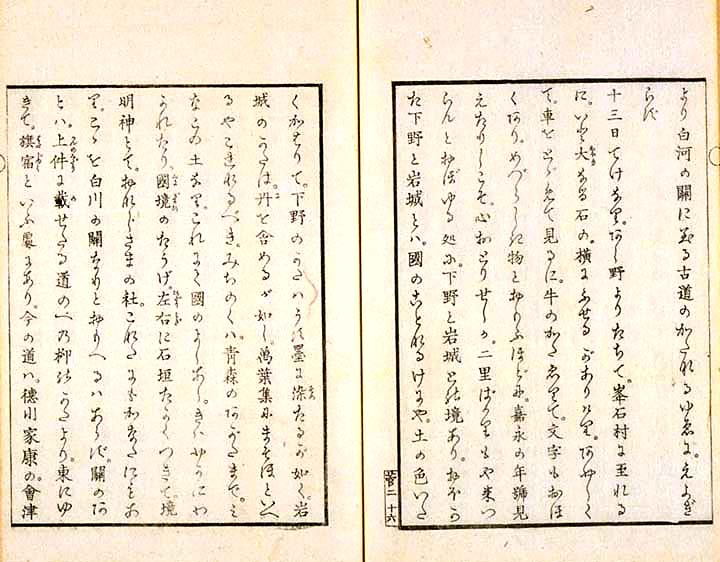 より白河の關に至る古道の
ゆゑに。えよぎ
十三日てけなり。あし野よりたちて。峯石村に至れる
に。いと大なる石の。横にふせるがありけり。あやしく
て。車をとゞめて見るに。牛のかたゑりて。文字もおほ
くあり。めづらしき物とおもふほどに。嘉永の年號見
えたりしこそ。心おとりせしか。二里ばかりもや來つ
らんとおぼゆる処に。下野と岩城との境あり。おほか
た下野と岩城とハ。國のことなるけにや。土の色いた
二 十六
くかはりて。下野のかたハうす墨に染たるが如く。岩
城のかたは。丹を含めるが如し。萬葉集にまそほといへ
るやこれなるべき。みちのくハ。青森のあがたまで。み
なこの土なり。これにて國のよしあし。きハやかにわ
かれたり。國境のたうげ。左右に石垣たかくつきて。境
明神とて。おなじさまの社。
り。こゝを白川の關なりとおもへるハあらず。關のあ
とハ。上件に載せたる道のべの柳のかたより。東にゆ
きて。旗宿といふ處にあり。今の道ハ。德川家康の。會津